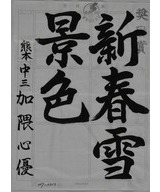 新春雪
景色
熊本中三 加隈心優